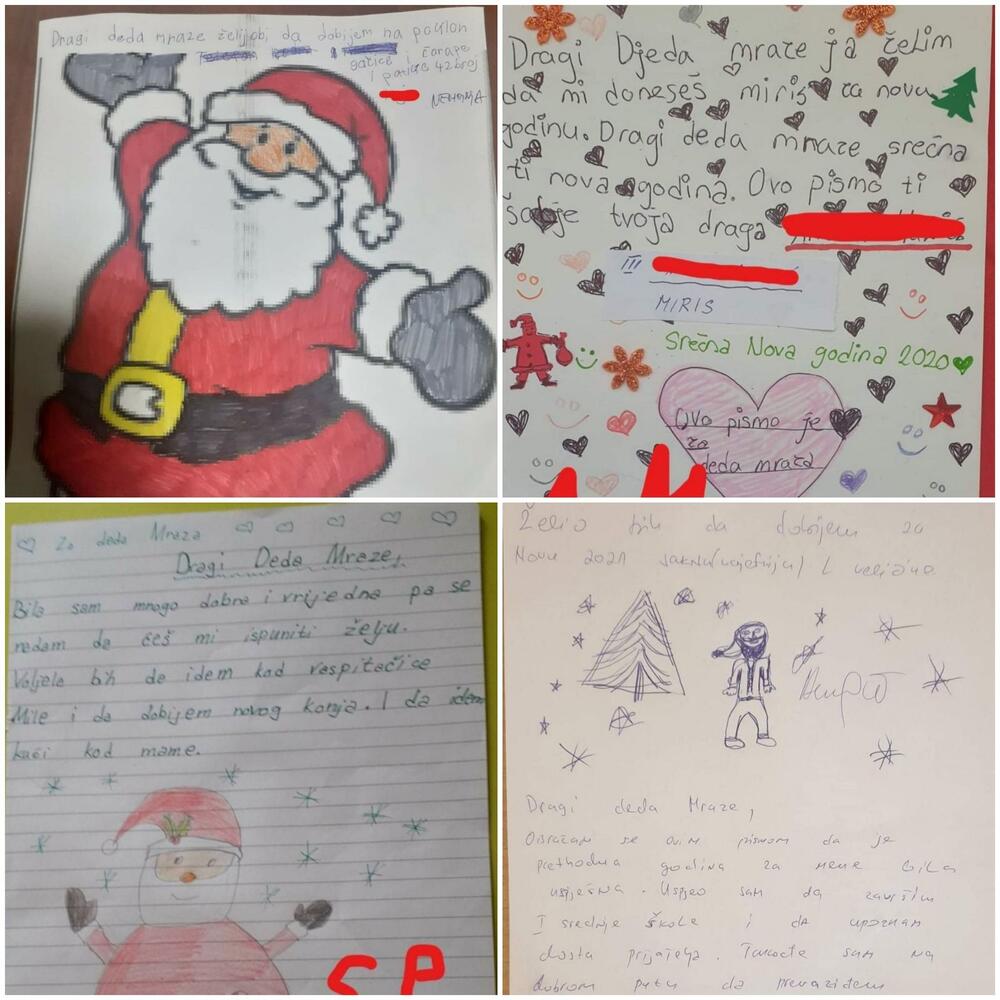 Dragi deda mraze željobi da dobijem na poklon
gatice i Farape
i patike 42 broj
Dragi Djeda mraze ja želim
da mi doneseš miris za novu
godinu. Dragi deda mraze srećna
ti nova godina. Ovo pismo ti
šalje tvoja draga
III
MIRIS
Srećna Nova godina 2020
Ovo pismo je
za
deda mraza
Za deda Mraza
Dragi Deda Mraze,
Bila sam mnogo dobra i vrijedna pa se
nadam da ćeš mi ispuniti želju.
Voljela bih da idem kod vaspitačice
Mile i da dobijem novog konja. I da idem
kući kod mame.
SP
Želio bih da dobijem za
Novu 2021 jaknu L veličine.
Dragi deda Mraze,
Obraćam se ovim pismom da je
prethodna godina za mene bila
uspješna. Uspjeo sam da završim
I srednje škole i da upoznam
dosta prijatelja. Takođe sam na
dobrom putu da prevaziđem